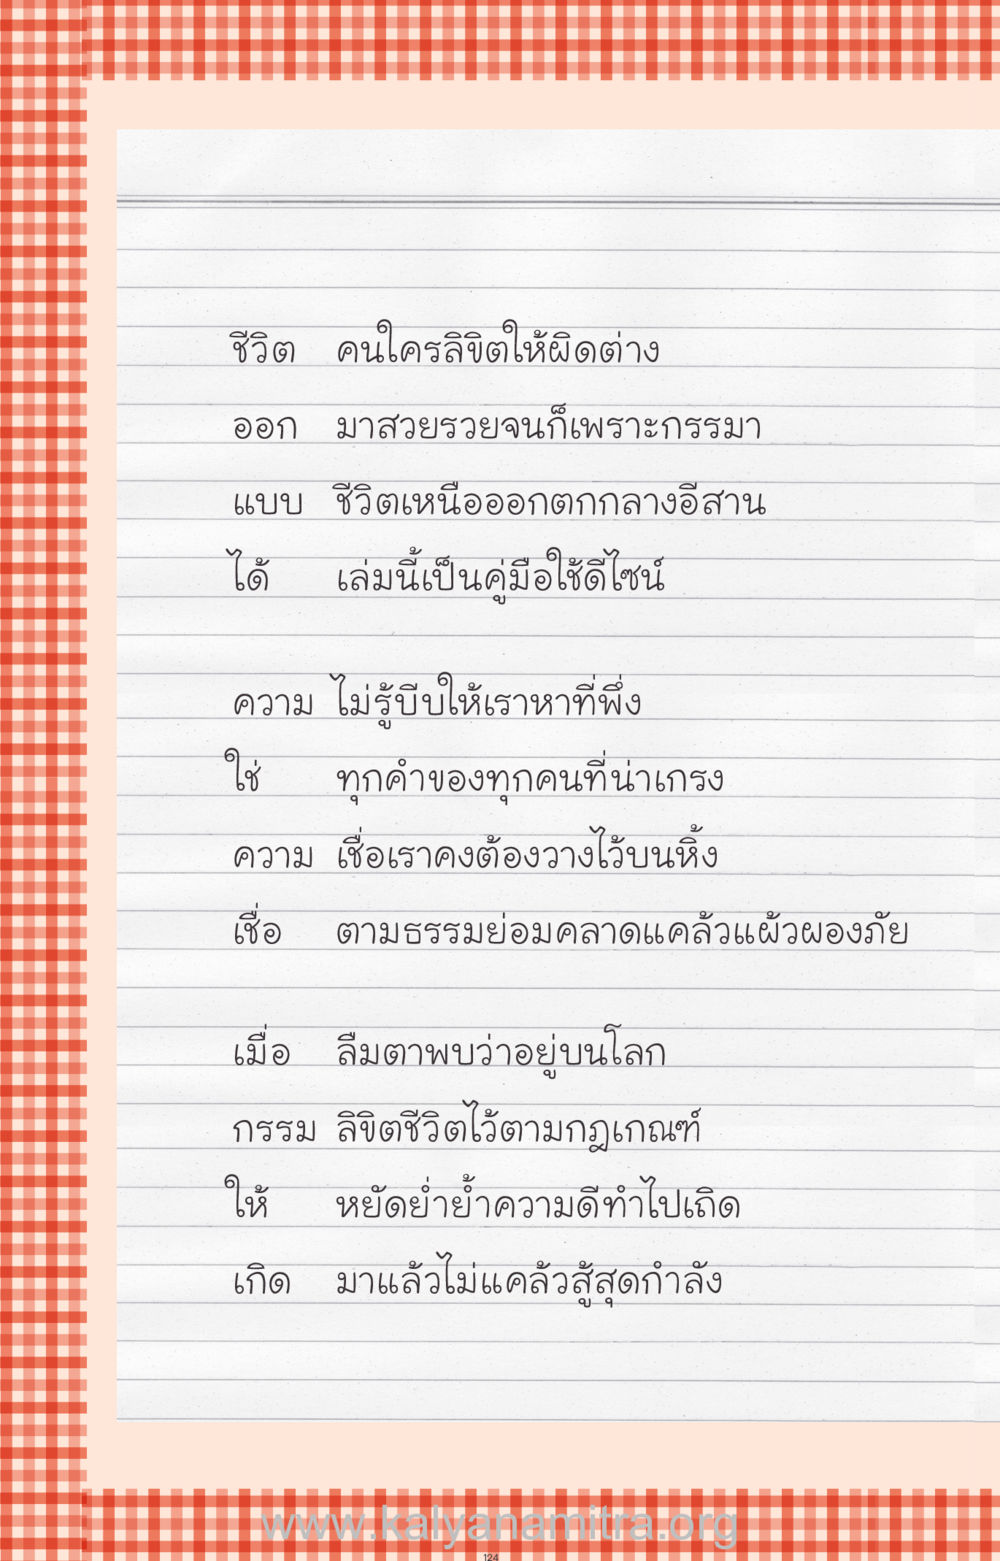 ชีวิต คนใครลิขิตให้ผิดต่าง
ออก มาสวยรวยจนก็เพราะกรรมา
แบบ ชีวิตเหนือออกตกกลางอีสาน
ได้ เล่มนี้เป็นคู่มือใช้ดีไซน์
ความ ไม่รู้บีบให้เราหาที่พึ่ง
ใช่ ทุกคำของทุกคนที่น่าเกรง
ความ เชื่อเราคงต้องวางไว้บนหิ้ง
เชื่อ ตามธรรมย่อมคลาดแคล้วแผ้วผองภัย
เมื่อ ลืมตาพบว่าอยู่บนโลก
กรรม ลิขิตชีวิตไว้ตามกฎเกณฑ์
ให้ หยัดย่ำย้ำความดีทำไปเถิด
เกิด มาแล้วไม่แคล้วสู้สุดกำลัง
www.kalyanamitra.org
124